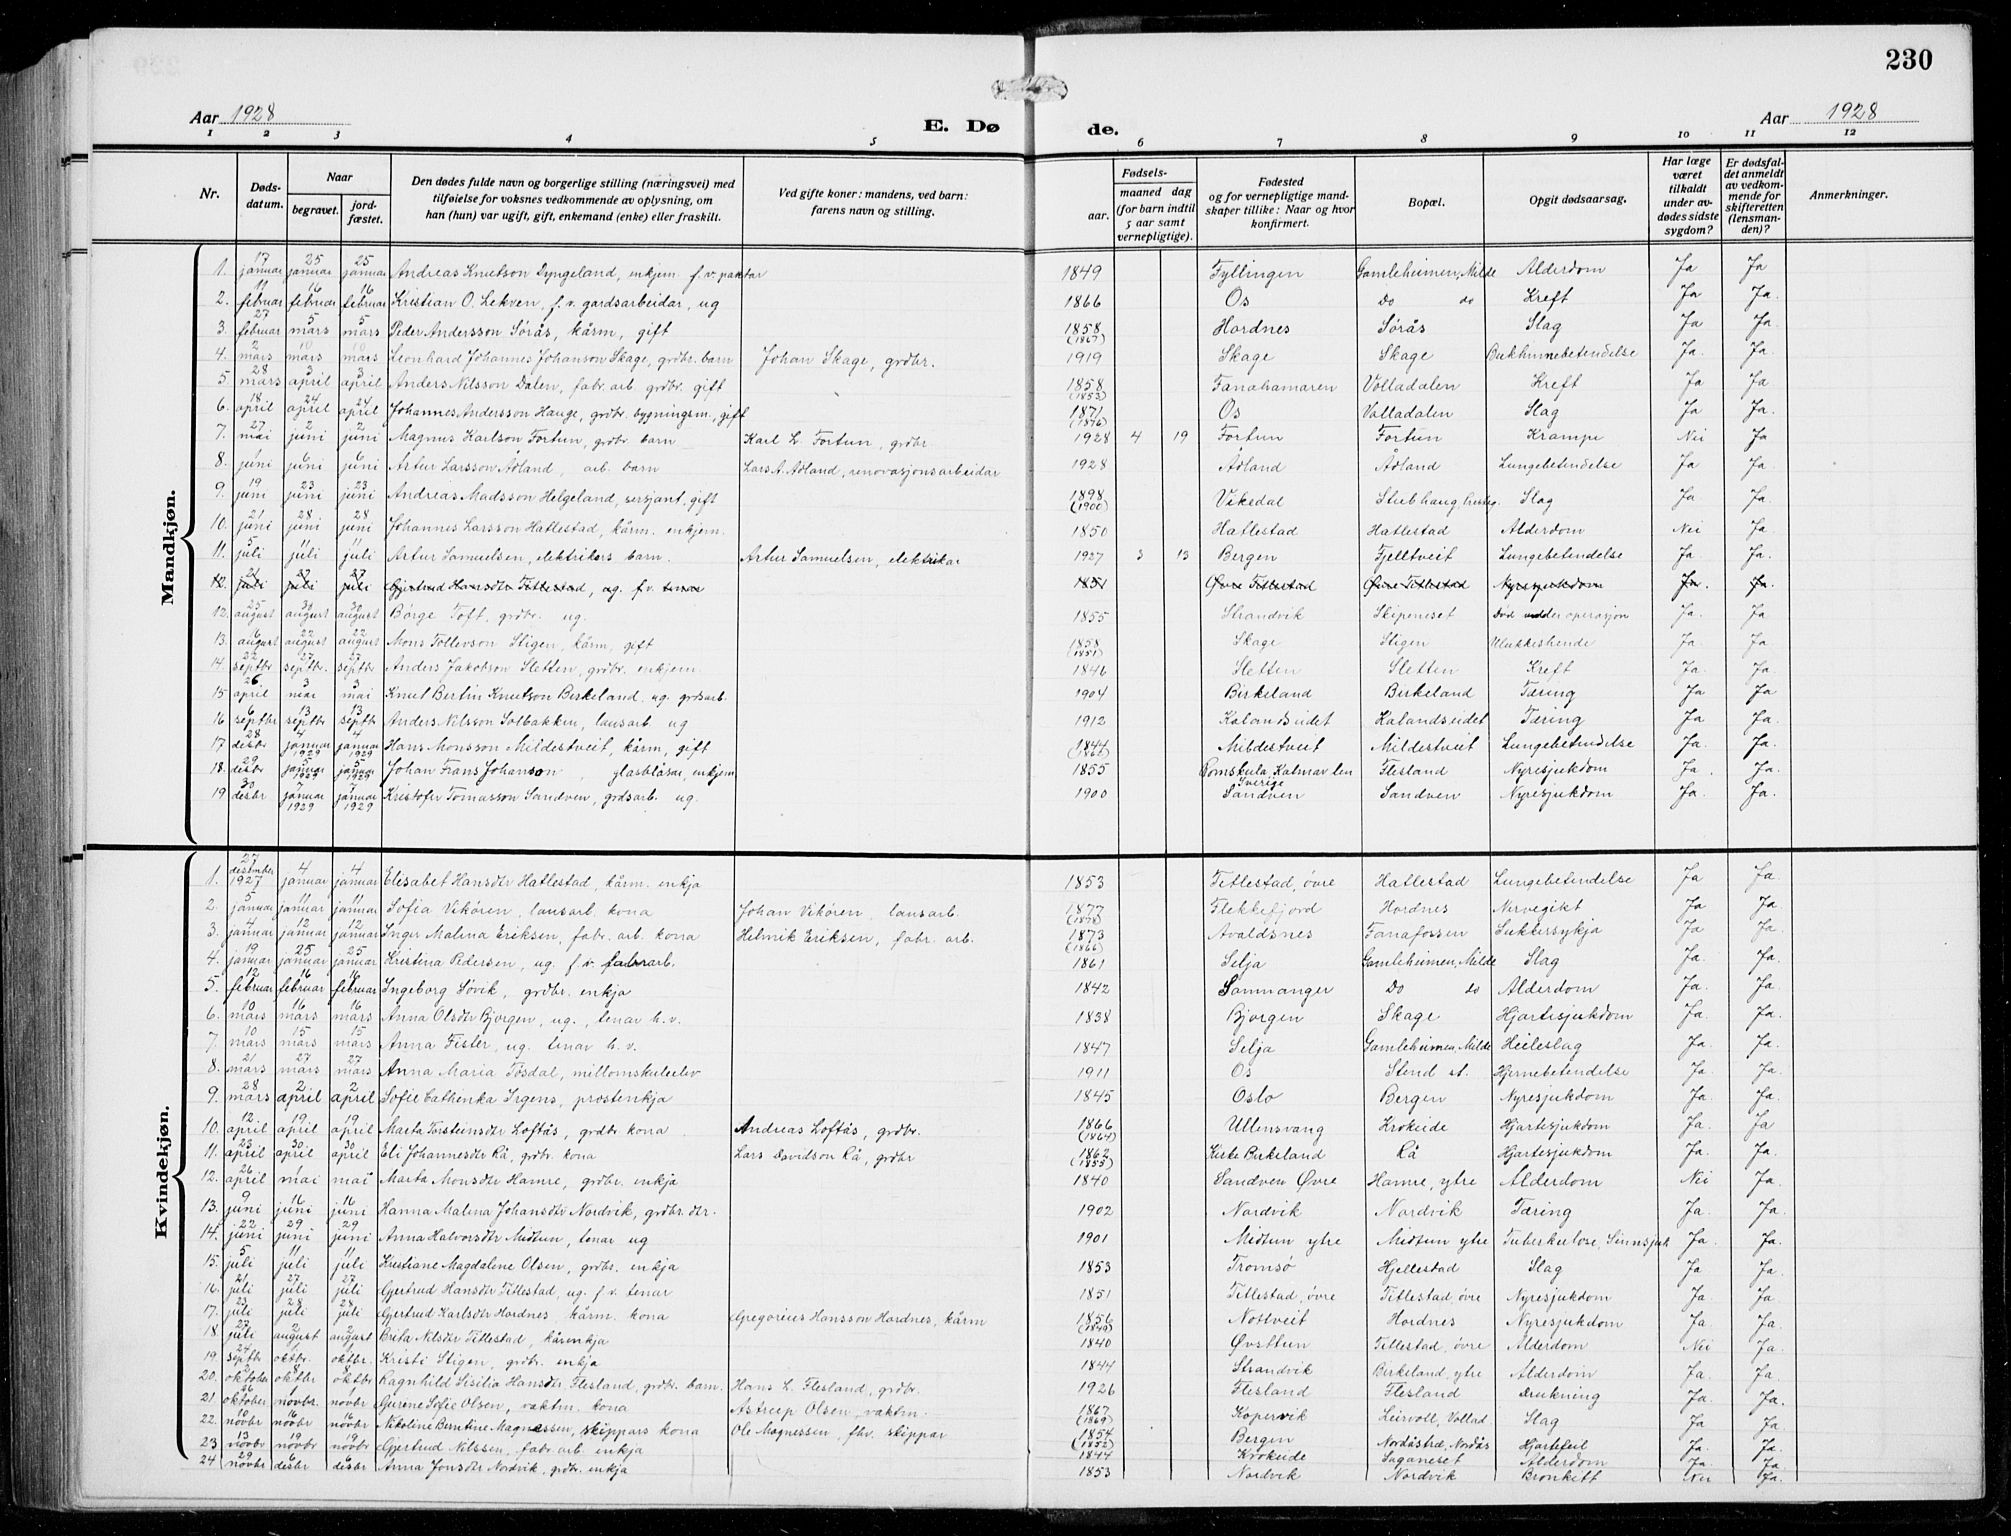 230
Aar 1928
E. Døde.
Aar 1928
1 2 3 4 5 6 7 8 9 10 11 12
Nr. Døds-datum. Naar begravet. jord-fæstet. Den dødes fulde navn og borgerlige stilling (næringsvei) med tilføielse for voksnes vedkommende av oplysning, om han (hun) var ugift, gift, enkemand (enke) eller fraskilt. Ved gifte koner: mandens, ved barn: farens navn og stilling. Fødsels- aar. maaned dag (for barn indtil 5 aar samt vernepligtige). Fødested og for vernepligtige mand-skaper tillike: Naar og hvor konfirmert. Bopæl. Opgit dødsaarsag. Har læge været tilkaldt under av-dødes sidste sygdom? Er dødsfal-det anmeldt av vedkom-mende for skifteretten (lensman-den)? Anmerkninger.
Mandkjøn.
1. 17 januar 25 januar 25 januar Andreas Knutson Dyngeland, enkjem. f.v. paktar 1849 Fyllingen Gamleheimen, Milde Alderdom Ja Ja
2. 11 februar 16 februar 16 februar Kristian O. Lekven, f.v. gardsarbeidar, ug 1866 Os do do Kreft Ja Ja.
3. 27 februar 5 mars 5 mars Peder Andersson Sørås, kårm, gift 1858 (1867) Hordnes Sørås Slag Ja Ja.
4. 2 mars 10 mars 10 mars Leonhard Johannes Johanson Skage, grdbr. barn Johan Skage, grdbr. 1919 Skage Skage Bukhinnebetendelse Ja. Ja.
5. 28 mars 3 april 3 april Anders Nilsson Dalen, fabr. arb. grdbr. gift 1858 (1853) Fanahamaren Volladalen Kreft Ja Ja.
6. 18 april 24 april 24 april Johannes Andersson Hauge, grdbr. bygningsm., gift 1871 (1876) Os Volladalen Slag Ja Ja.
7. 27 mai 2 juni 2 juni Magnus Karlson Fortun, grdbr. barn Karl L. Fortun, grdbr. 1928 4 19 Fortun Fortun Krampe Nei Ja
8. 1 juni 6 juni 6 juni Artur Larsson Ådland, arb. barn Lars A. Ådland, renovasjonsarbeidar 1928 Ådland Ådland Lungebetendelse Ja Ja.
9. 19 juni 23 juni 23 juni Andreas Madsson Helgeland, sersjant, gift 1898 (1900) Vikedal Stubhaug, Slag Ja Ja.
10. 21 juni 28 juni 28 juni Johannes Larsson Hatlestad, kårm. enkjem. 1850 Hatlestad Hatlestad Alderdom Nei Ja.
11. 5 juli 11 juli 11 juli Artur Samuelsen, elektrikers barn. Artur Samuelsen, elektrikar 1927 3 13 Bergen Fjelltveit Lungebetendelse Ja. Ja.
12. 21 juli 27 juli 27 juli Gjertrud Hansdtr Titlestad, ug. f.v. tenar 1851 Øvre Titlestad Øvre Titlestad Nyresjukdom Ja. Ja.
12. 25 august 30 august 30 august Børge Toft, grdbr. ug. 1855 Strandvik Skipeneset Død under operasjon Ja. Ja
13. 6 august 22 august 22 august Mons Tollevson Stigen, kårm, gift 1858 (1851) Skage Stigen Ulukkeshende Ja. Ja
14. 22 septbr 27 septbr. 27 septbr Anders Jakobson Sletten, grdbr. enkjem. 1846 Sletten Sletten Kreft Ja. Ja.
15 26. april 3 mai 3 mai Knut Bertin Knutson Birkeland, ug. grdsarb. 1904 Birkeland Birkeland Tæring Ja Ja
16 6 septbr 13 septbr 13 septbr Anders Nilsson Solbakken, lausarb. ug 1912 Kalandseidet Kalandseidet Tæring Ja Ja.
17 28 desbr 4 januar 1929 4 januar 1929 Hans Monsson Mildestveit, kårm, gift 1844 Mildestveit Mildestveit Lungebetendelse Ja. Ja.
18. 29 desbr 5 januar 1929 5 januar 1929 Johan Frans Johanson, glasblåsar, enkjem 1855 Domskula, Kalmar len Sverige Flesland Nyresjukdom Ja. Ja.
19 30 desbr 7 januar 1929 7 januar 1929 Kristofer Tomasson Sandven, grdsarb. ug. 1900 Sandven Sandven Nyresjukdom Ja. Ja.
Kvindekjøn.
1. 27 desember 1927 4 januar 4 januar Elisabet Hansdtr Hatlestad, kårm. enkja 1853 Titlestad, øvre Hatlestad Lungebetendelse Ja Ja.
2. 5 januar 11 januar 11 januar Sofia Vikøren, lausarb. kona Johan Vikøren, lausarb. 1877 (1878) Flekkefjord Hordnes Nervegikt Ja Ja.
3. 4 januar 12 januar 12 januar Inger Malena Eriksen, fabr. arb. kona Helmik Eriksen, fabr. arb. 1873 (1866) Avaldsnes Fanafossen Sukkersykja Ja Ja.
4. 19 januar 25 januar 25 januar Kristina Pedersen, ug. f.v. fabrarb. 1861 Selja Gamleheimen, Milde Slag Ja. Ja.
5. 12 februar 16 februar 16 februar Ingeborg Søvik, grdbr. enkja 1842 Samnanger Do do Alderdom Ja. Ja.
6. 10 mars 16 mars 16 mars Anna Olsdtr Bjørgen, ug., tenar h.v. 1838 Bjørgen Skage Hjartesjukdom Ja. Ja.
7. 10 mars 15 mars 15 mars Anna Fister, ug. tenar h.v. 1847 Selja Gamleheimen, Milde Heileslag Ja. Ja.
8. 21 mars 27 mars 27 mars Anna Maria Tøsdal, millomskuleelev 1911 Os Stend st. Hjernebetendelse Ja. Ja.
9. 28 mars 2 april 2 april Sofie Cathinka Irgens, prestenkja 1845 Oslo Bergen Nyresjukdom Ja. Ja.
10. 12 april 19 april 19 april Marta Torsteinsdtr Loftås, grdbr. kona Andreas Loftås, grdbr. 1866 (1864) Ullensvang Krokeide Hjartesjukdom Ja. Ja
11. 23 april 30 april 30 april Eli Johannesdtr Rå, grdbr. kona Lars Davidson Rå, grdbr 1862 (1855) Kirke Birkeland Rå Hjartesjukdom Ja. Ja.
12. 26 april 1 mai 1 mai Marta Monsdtr Hamre, grdbr. enkja 1840 Sandven Øvre Hamre, ytre Alderdom Nei Ja.
13. 9 juni 16 juni 16 juni Hanna Malena Johansdtr Nordvik, grdbr. dtr. 1902 Nordvik Nordvik Tæring Ja. Ja.
14. 22 juni 29 juni 29 juni Anna Halvorsdtr Midtun, tenar ug 1901 Midtun ytre Midtun ytre Tuberkulose, Sinnsjuk Ja. Ja.
15. 5 juli 11 juli 11 juli Kristiane Magdalene Olsen, grdbr. enkja 1853 Tromsø Hjellestad Slag Ja Ja.
16. 21 juli 27 juli 27 juli Gjertrud Hansdtr Titlestad, ug. f.v. tenar 1851 Titlestad, øvre Titlestad, øvre Nyresjukdom Ja. Ja
17. 23 juli 28 juli 28 juli Gjertrud Karlsdtr Hordnes, kårm. kona Gregorius Hansson Hordnes, kårm 1856 (1849) Nottveit Hordnes Nyresjukdom Ja. Ja.
18. 27 juli 2 august 2 august Brita Nilsdtr Titlestad, kårenkja 1840 Øvsttun Titlestad, øvre Alderdom Nei Ja.
19. 24 septbr 1 oktbr. 1 oktbr. Kristi Stigen, grdbr. enkja 1844 Strandvik Birkeland, ytre Alderdom Ja. Ja.
20. 2 oktober 8 oktbr 8 oktbr Ragnhild Sisilia Hansdtr Flesland, grdbr. barn. Hans L. Flesland, grdbr. 1926 Flesland Flesland Drukning Ja. Ja.
21. 26 oktober 1 novbr. 1 novbr Gurene Sofie Olsen, vaktm. kona Astrup Olsen, vaktm. 1867 (1869) Kopervik Leirvoll, Vollad Slag Ja Ja.
22. 10 novbr 16 novbr 16 novbr Nikoline Berntine Magnessen, skippars kona Ole Magnessen, fhv. skippar 1854 (1852) Bergen Nordåstræ, Nordås Hjartefeil Ja. Ja.
23 13 novbr 19 novbr 19 novbr Gjertrud Nilssen, fabr. arb. enkja 1844 Krokeide Saganeset Alderdom Ja. Ja.
24 29 novbr 6 desbr 6 desbr Anna Jonsdtr Nordvik, grdbr. enkja 1853 Nordvik Nordvik Bronkitt Nei Ja.